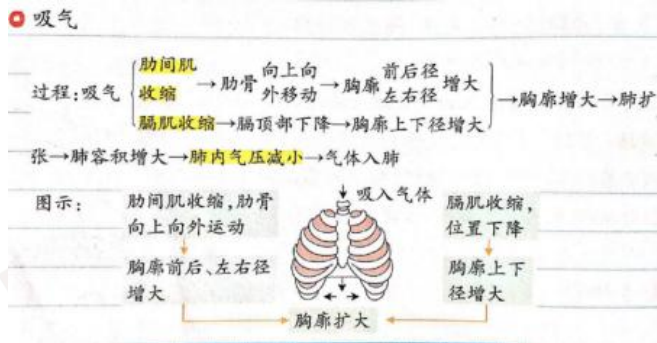 吸气
过程:吸气
肋间肌
收缩
→肋骨 向上向
外移动 →胸廓 前后径
左右径 增大
膈肌收缩→膈顶部下降→胸廓上下径增大
→胸廓增大→肺扩
张→肺容积增大→肺内气压减小→气体入肺
图示:
肋间肌收缩,肋骨
向上向外运动
胸廓前后、左右径
增大
吸入气体
膈肌收缩,
位置下降
胸廓上下
径增大
胸廓扩大